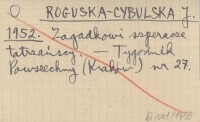 O ROGUSKA-CYBULSKA J.
1952. Zagadkowi szperacze
tatrzańscy. — Tygodnik
Powszechny (Kraków) nr 27.